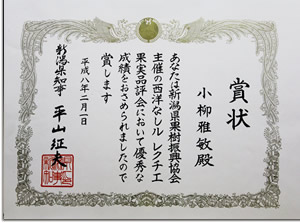 賞状
小柳雅敏殿
あなたは新潟県果樹振興協会
主催の西洋なしル レクチエ
果実品評会において優秀な
成績をおさめられましたので
賞します
平成八年二月一日
新潟県知事 平山征夫